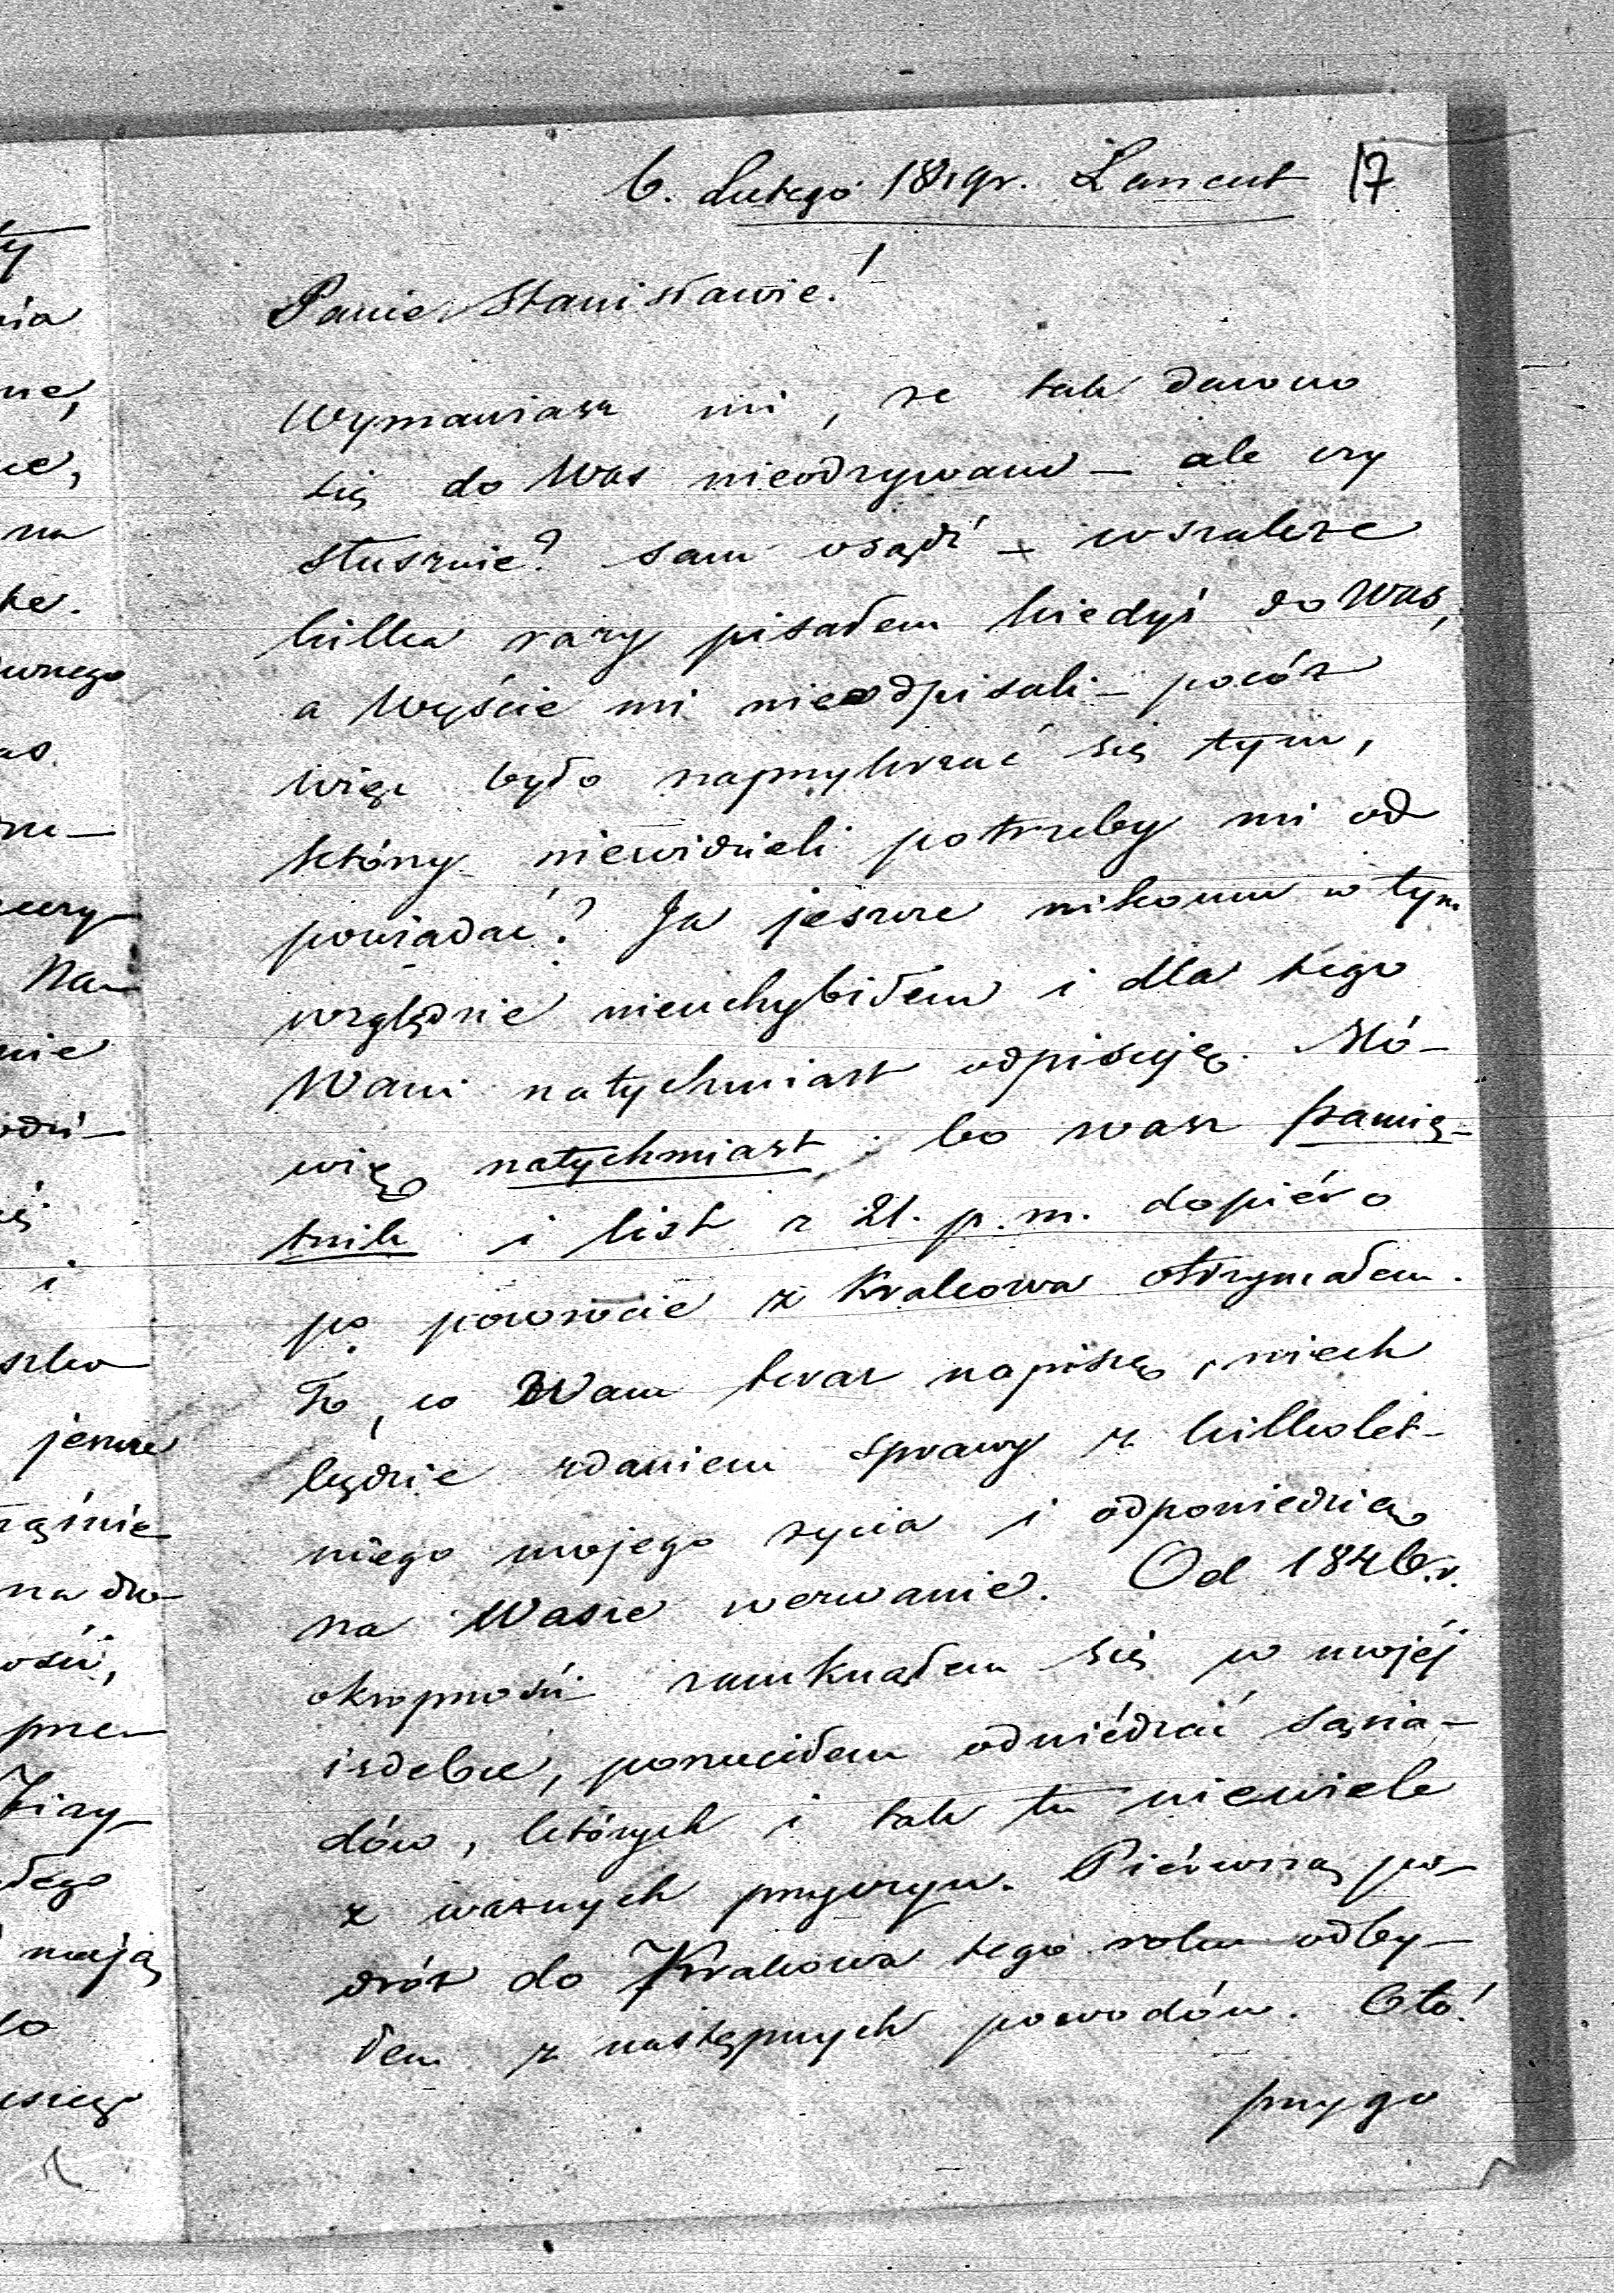 6. Lutego 1849r. Łancut 17
Panie Stanisławie!
Wymawiasz mi, że tak dawno
się do Was nieodzywam – ale czy
słusznie? sam osądź – wszakże
kilka razy pisałem kiedyś do Was,
a Wyście mi nieodpisali – pocóż
więc było naprzykrzać się tym,
którzy niewidzieli potrzeby mi od
powiadać? Ja jeszcze nikomu w tym
względzie nieuchybiłem i dla tego
Wam natychmiast odpisuję. Mó-
wię natychmiast, bo wasz pamię-
tnik i list z 21. p. m. dopiéro
po powrocie z Krakowa otrzymałem.
To, co Wam teraz napiszę, niech
będzie zdaniem sprawy z kilkolet-
niego mojego życia i odpowiedzią
na Wasze wezwanie. Od 1846.r.
okropności zamknąłem się w mojéj
izdebce, porzuciłem odwiédzać sąsia-
dów, których i tak tu niewiele
z ważnych przyczyn. Piérwszą po-
dróż do Krakowa tego roku odby-
łem z następnych powodów. Oto!
przygo
ty
nia
na
ke.
wnego
as.
czy
Na-
nie
i
jeszcze
prze-
łego
mają